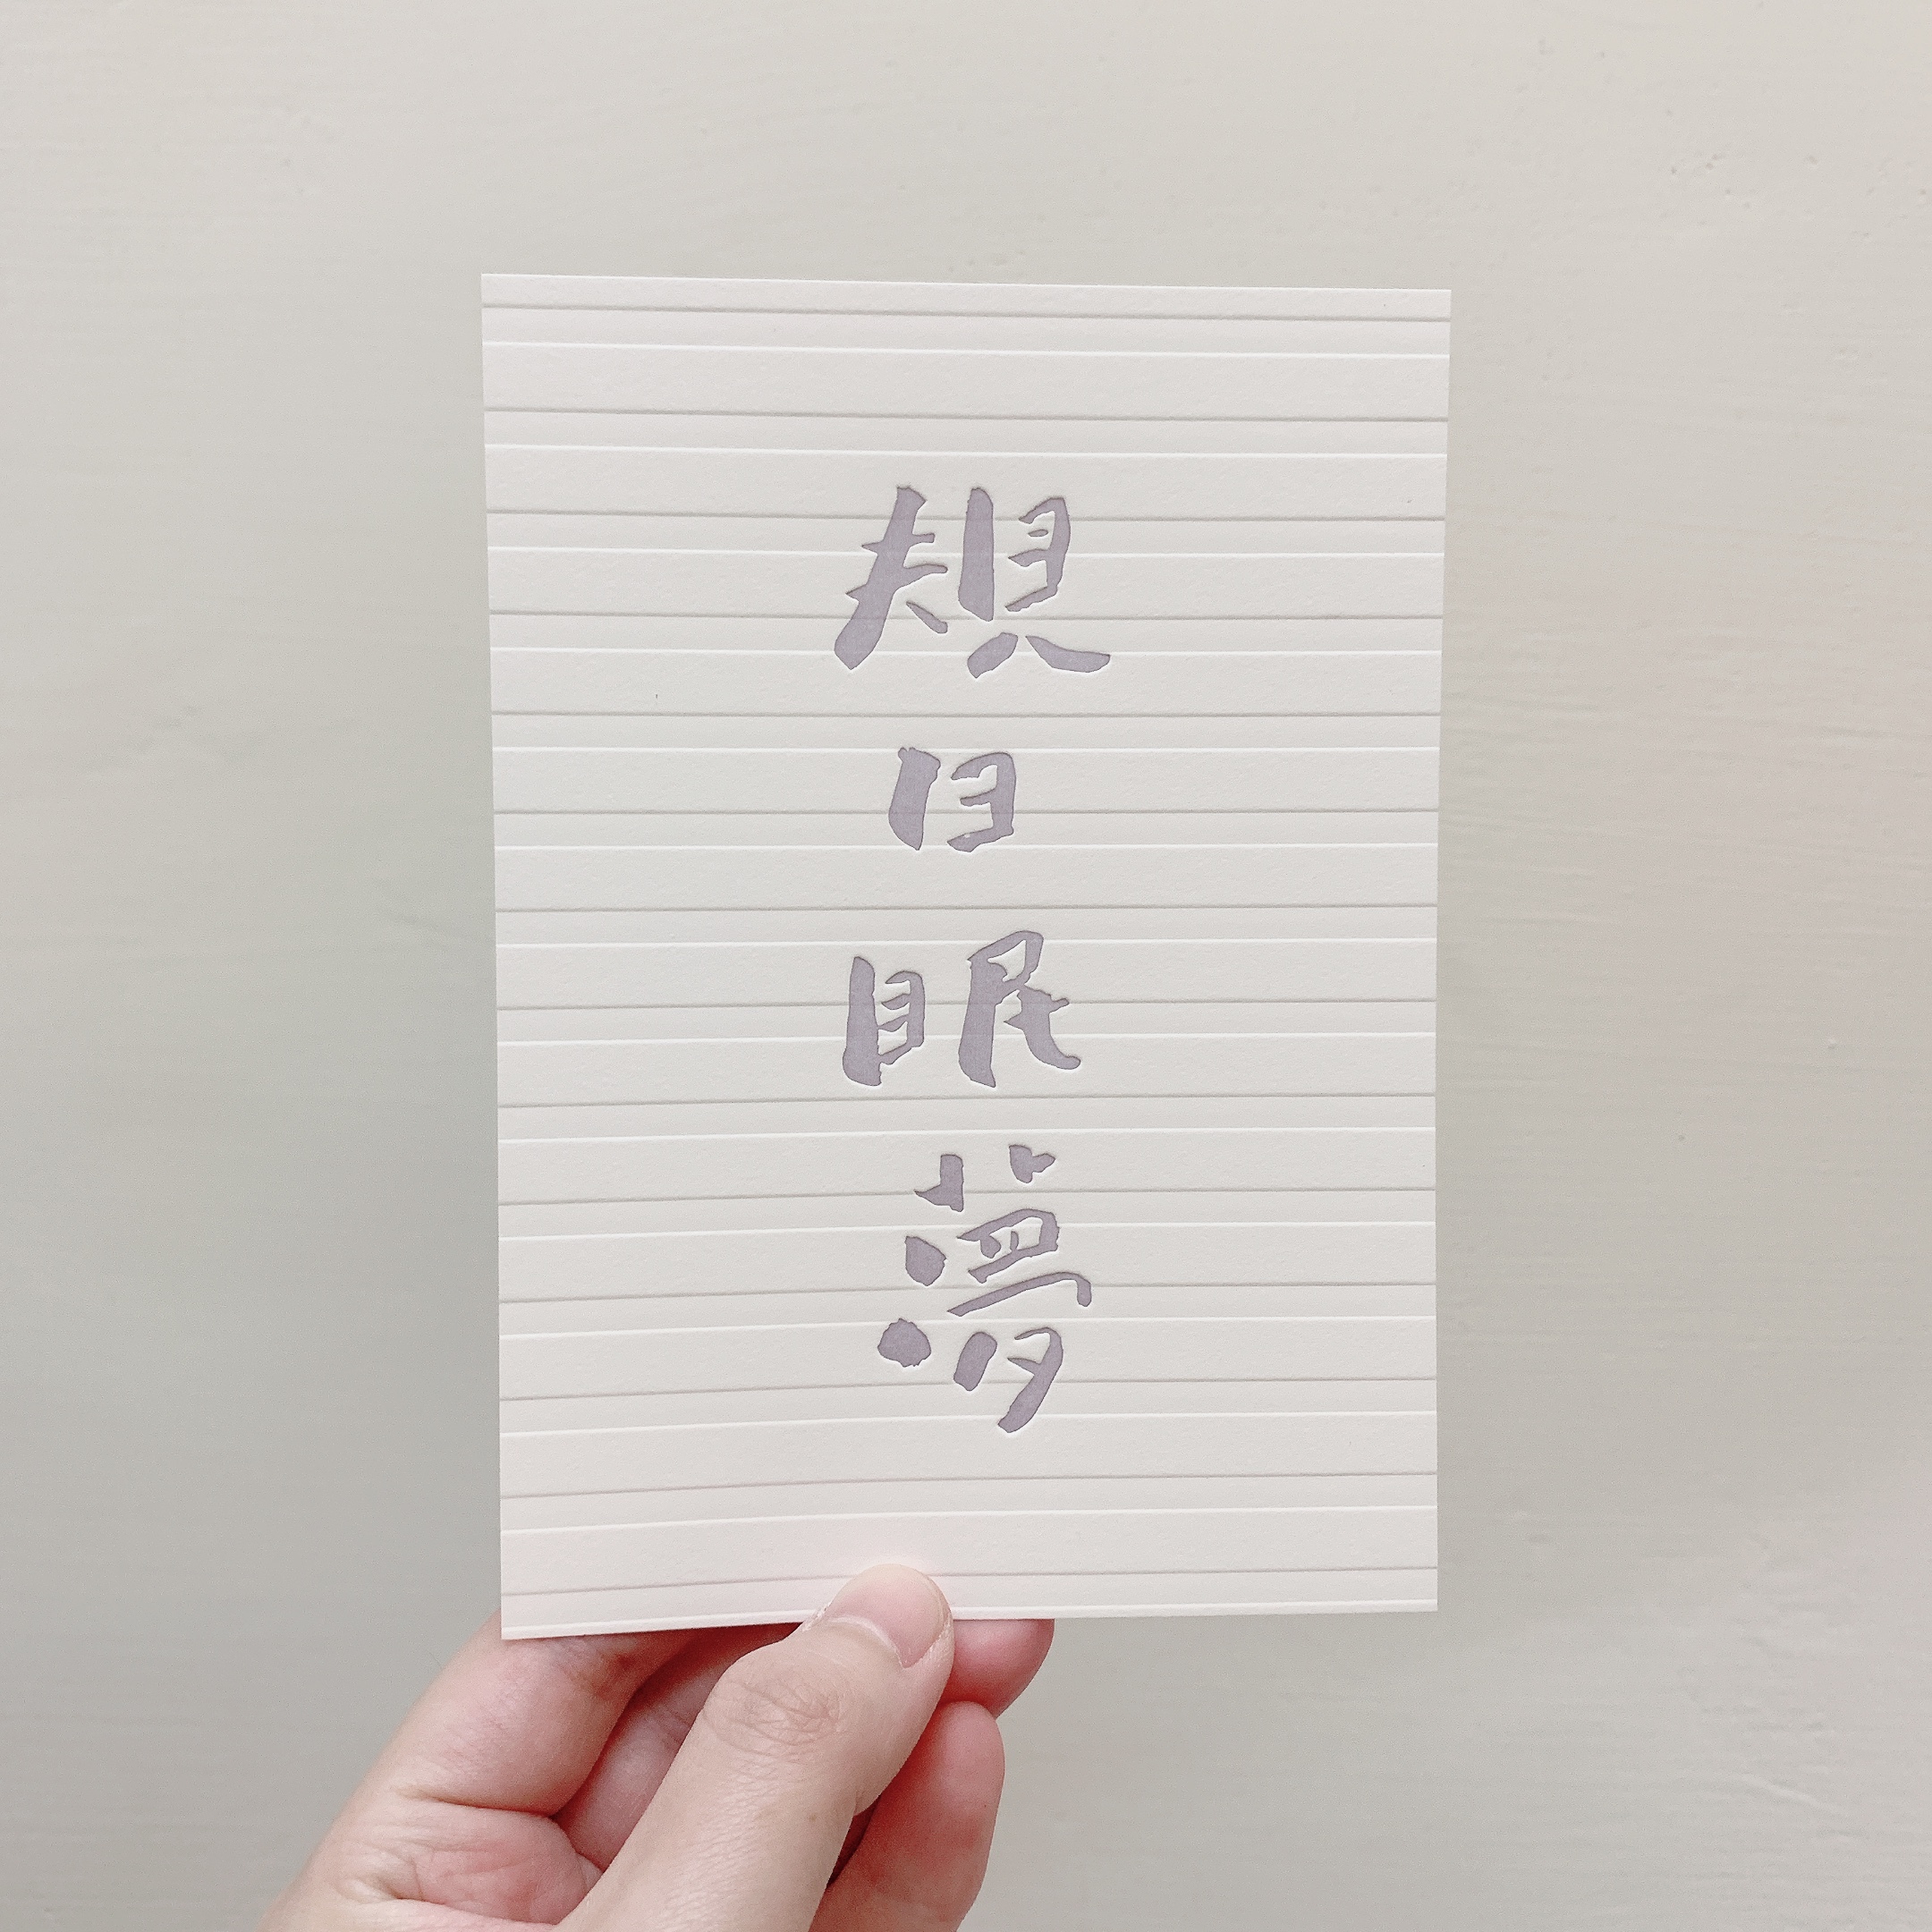 規日眠夢